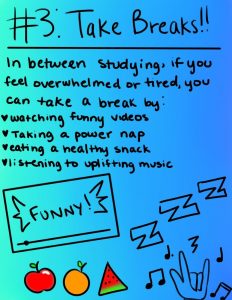 #3: Take Breaks!!
In between studying, if you
feel overwhelmed or tired, you
can take a break by:
♥watching funny videos
♥Taking a power nap
♥eating a healthy snack
♥listening to uplifting music
FUNNY!
Z Z Z